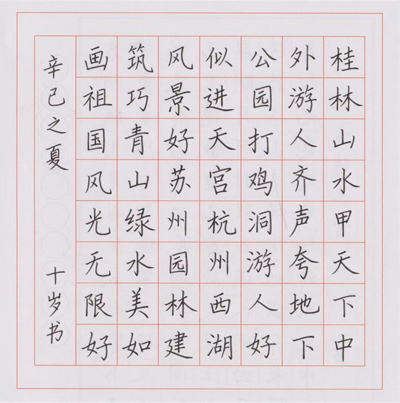 桂林山水甲天下中
外游人齐声夸地下
公园打鸡洞游人好
似进天宫杭州西湖
风景好苏州园林建
筑巧青山绿水美如
画祖国风光无限好
辛巳之夏 十岁书